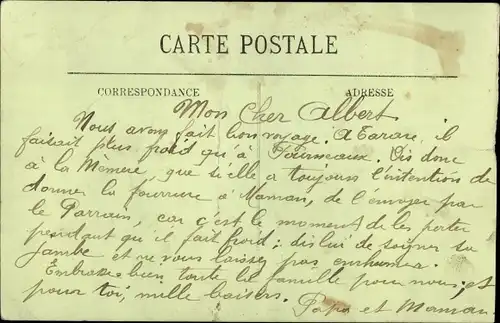 CARTE POSTALE
CORRESPONDANCE
ADRESSE
Mon cher Albert
Nous avons fait bon voyage. A Tarare, il
faisait plus froid qu'à Fourneaux. Dis donc
à la Mémère, que si elle a toujours l'intention de
donner la fourrure à Maman, de l'envoyer par
le Parrain, car c'est le moment de les porter
pendant qu'il fait froid; dis lui de soigner sa
jambe et ne vous laissez pas enrhumer.
Embrasse bien toute la famille pour nous, et
pour toi, mille baisers.
Papa et Maman